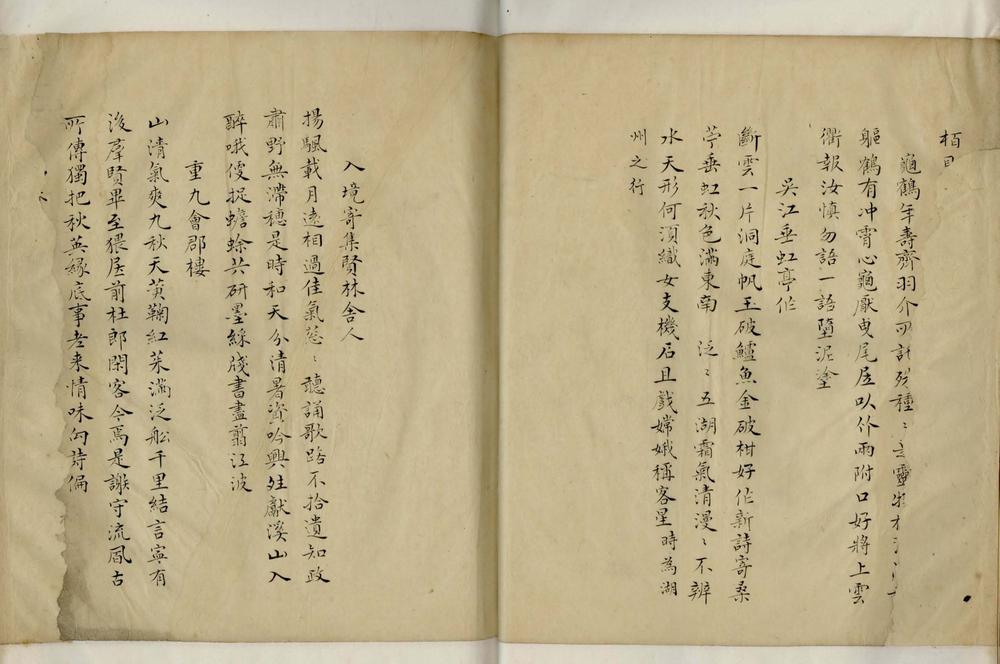 龜鶴年壽齊羽介所託殊種種是靈物相
軀鶴有冲霄心龜厭曳尾居以竹兩附口好將上雲
衢報汝慎勿語一語墮泥塗
吳江垂虹亭作
斷雲一片洞庭帆玉破鱸魚金破柑好作新詩寄桑
苧垂虹秋色滿東南 泛〻五湖霜氣清漫〻不辨
水天形何須織女支機石且戲嫦娥稱客星時為湖
州之行
入境寄集賢林舍人
揚颿載月遠相過佳氣葱〻聽誦歌路不拾遺知政
肅野無滯穗是時和天分清暑資吟興殊獻溪山入
醉哦便捉蟾蜍共研墨綵牋書盡翦江波
重九會郡樓
山清氣爽九秋天黃鞠紅茱滿泛船千里結言寧有
後羣賢畢至猥居前杜郎閑客今焉是謝守流風古
所傳獨把秋英緣底事老來情味向詩偏